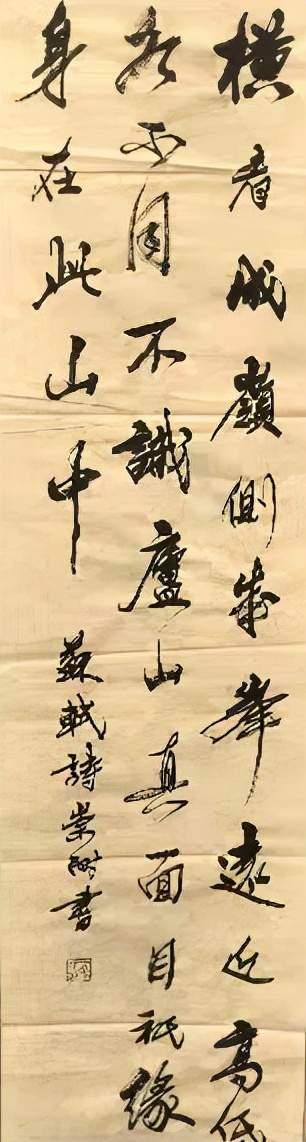 横看成嶺側成峯遠近高低
各不同不識廬山真面目祇緣
身在此山中
蘇軾詩崇書